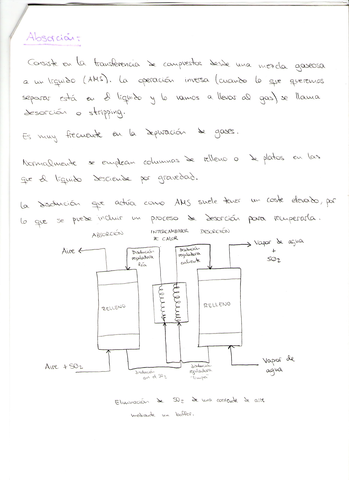 Absorción:
Consiste en la transferencia de compuestos desde una mezcla gaseosa
a un líquido (AMS). La operación inversa (cuando lo que queremos
separar está en el líquido y lo vamos a llevar al gas) se llama
desorción o stripping.
Es muy frecuente en la depuración de gases.
Normalmente se emplean columnas de relleno o de platos en las
que el líquido desciende por gravedad.
La disolución que actúa como AMS suele tener un coste elevado, por
lo que se puede incluir un proceso de desorción para recuperarla.
ABSORCIÓN INTERCAMBIADOR DE CALOR DESORCIÓN
Aire
Disolución regeneradora fría
Disolución regeneradora caliente
Vapor de agua + SO2
RELLENO
RELLENO
Aire + SO2
Disolución con el SO2
Disolución
Vapor de agua
Eliminación de SO2 de una corriente de aire
mediante un buffer.